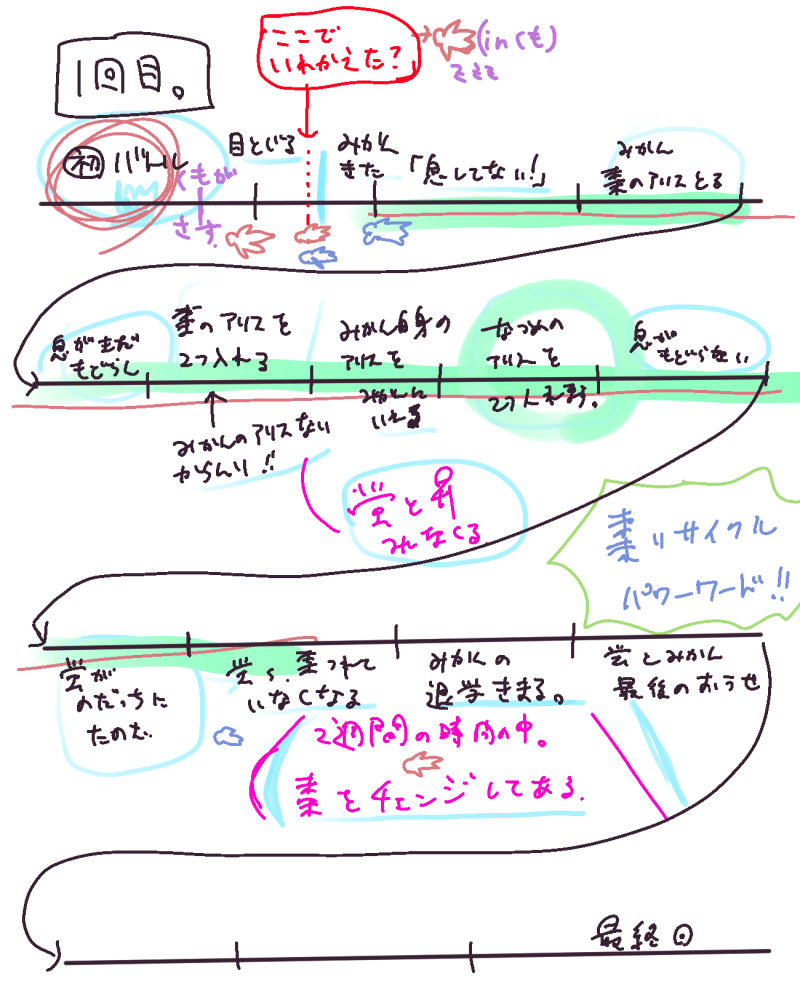 1回目。
ここで
いれかえた?
(inくも)
初 バトル
くもが
さす。
目とじる
みかん
きた
「息してない!」
みかん
棗のアリスとる
息がまだ
もどらん
棗のアリスを
2つ入れる
みかん自身の
アリスを
みかんに
いれる
なつめの
アリスを
2つ入れます。
息が
もどらない
みかんのアリスない
からんり!!
蛍と昴
みんなくる
棗リサイクル
パワーワード!!
蛍が
のだっちに
たのむ
蛍、棗つれて
いなくなる
みかんの
退学きまる。
蛍とみかん
最後のおうせ
2週間の時間の中。
棗をチェンジしてある。
最終回